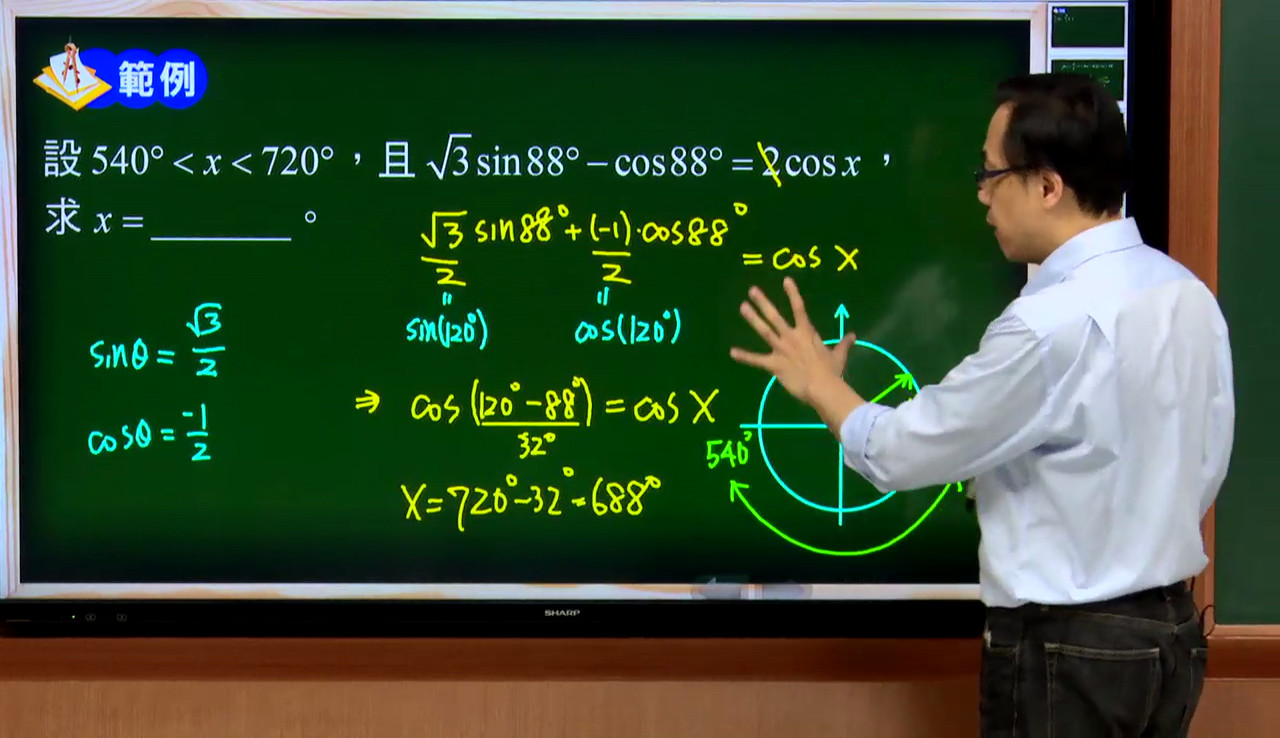 範例
設 540° < x < 720°，且 √3 sin88° − cos88° = 2cos x，
求 x = ________ °
√3/2 sin88° + (-1)/2 · cos88° = cos X
= =
sin(120°) cos(120°)
sinθ = √3/2
cosθ = -1/2
⇒ cos(120° − 88°) = cos X
32°
540°
X = 720° − 32° = 688°
SHARP